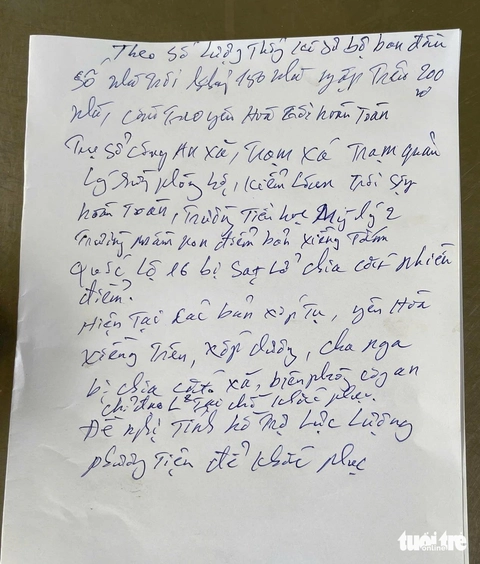 Theo số lượng thống kê sơ bộ ban đầu
Số nhà trôi 150 nhà ngập trên 200
nhà, cầu treo yên Hoà trôi hoàn toàn
Trụ sở công An xã, Trạm xá Trạm quản
lý rừng phòng hộ, kiểm lâm trôi sập
hoàn toàn, Trường Tiểu học Mỹ lý 2
Trường mầm non điểm bản xiềng Tắm
Quốc lộ 16 bị sạt lở chia cắt nhiều
điểm.
Hiện Tại các bản xốp Tụ, yên Hoà
xiềng Trên, xốp dương, cha nga
bị chia cắt xã, biên phòng công an
chỉ đạo Tại chỗ khắc phục.
Đề nghị Tỉnh hỗ trợ Lực Lượng
phương Tiện để khắc phục
tuổi trẻ
online